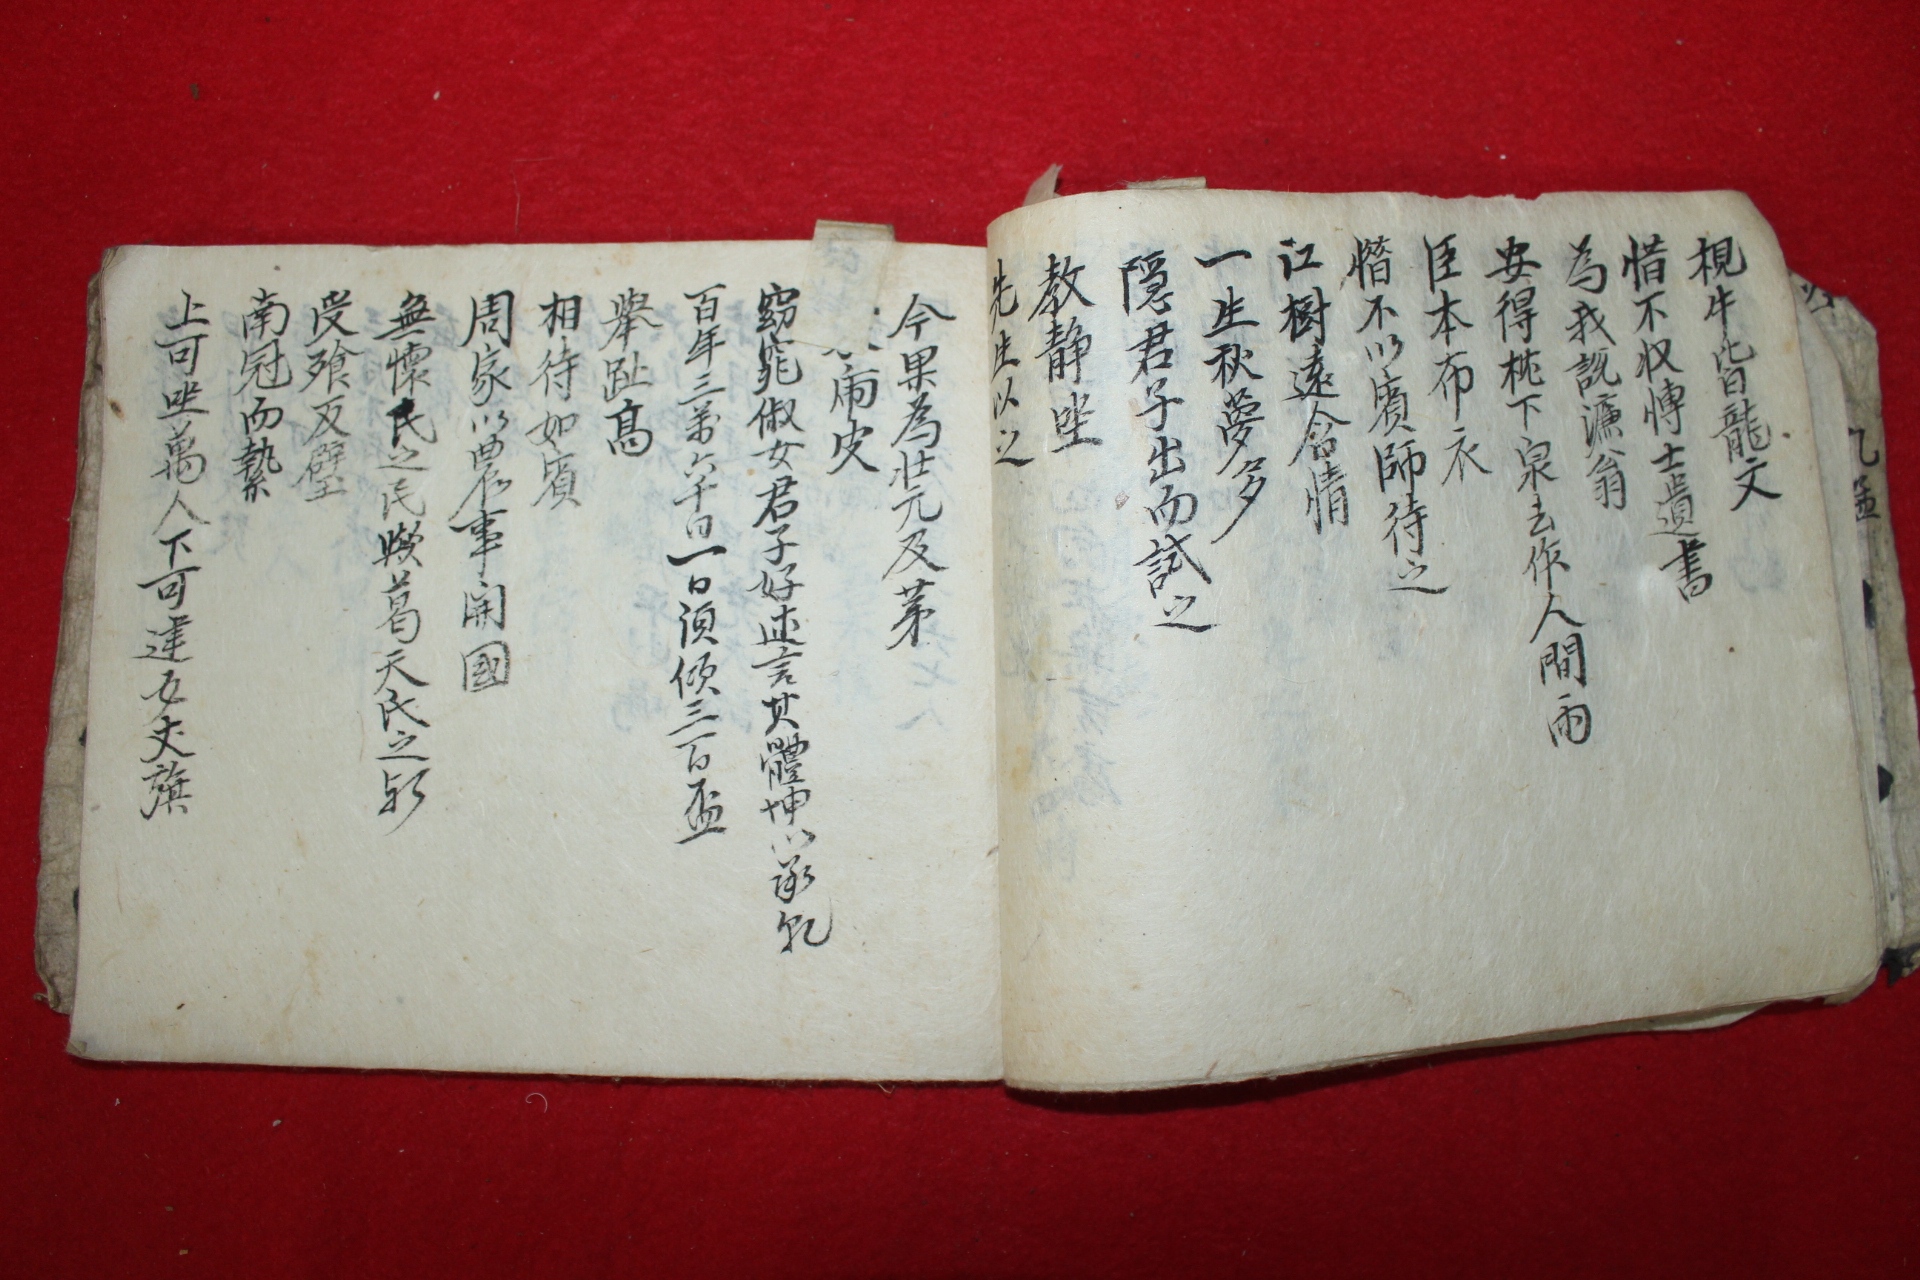 視牛皆龍文
惜不收博士遺書
為我説濂翁
安得枕下泉去作人間雨
臣本布衣
惜不以賓師待之
江樹遠含情
一生秋夢多
隱君子出而試之
教静坐
先生以之
今果為壮元及苐
雨皮
窈窕俶女君子好逑言其體坤以承乾
百年三萬六千日一日湏傾三百盃
舉趾高
相待如賓
周家以農事開國
無懷氏之民歟葛天氏之民歟
受飱反璧
南冠而縶
上可坐萬人下可建五丈旗